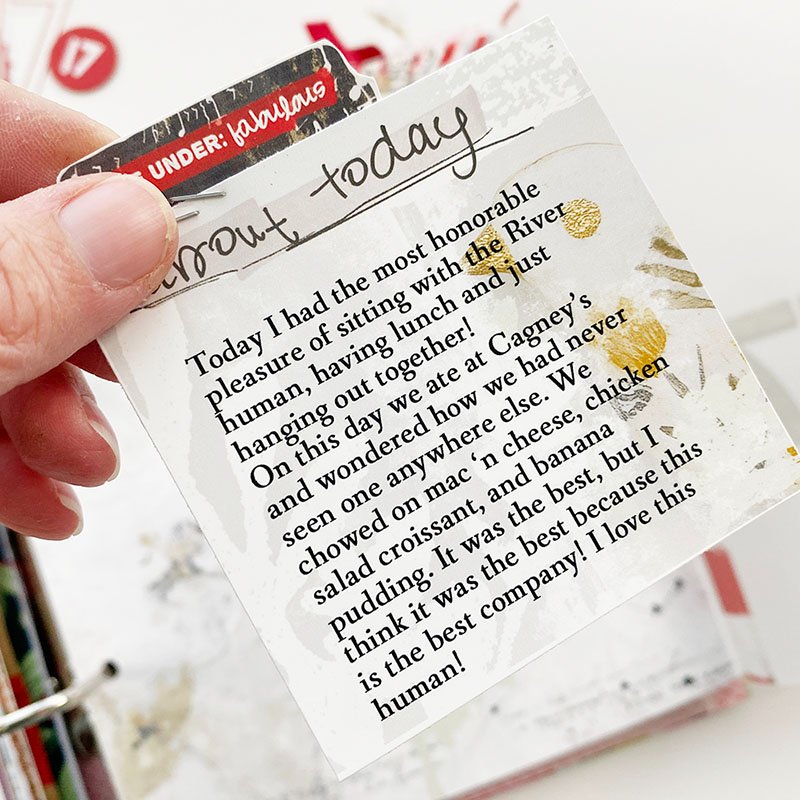 17
UNDER: fabulous
about today
Today I had the most honorable
pleasure of sitting with the River
human, having lunch and just
hanging out together!
On this day we ate at Cagney's
and wondered how we had never
seen one anywhere else. We
chowed on mac 'n cheese, chicken
salad croissant, and banana
pudding. It was the best, but I
think it was the best because this
is the best company! I love this
human!